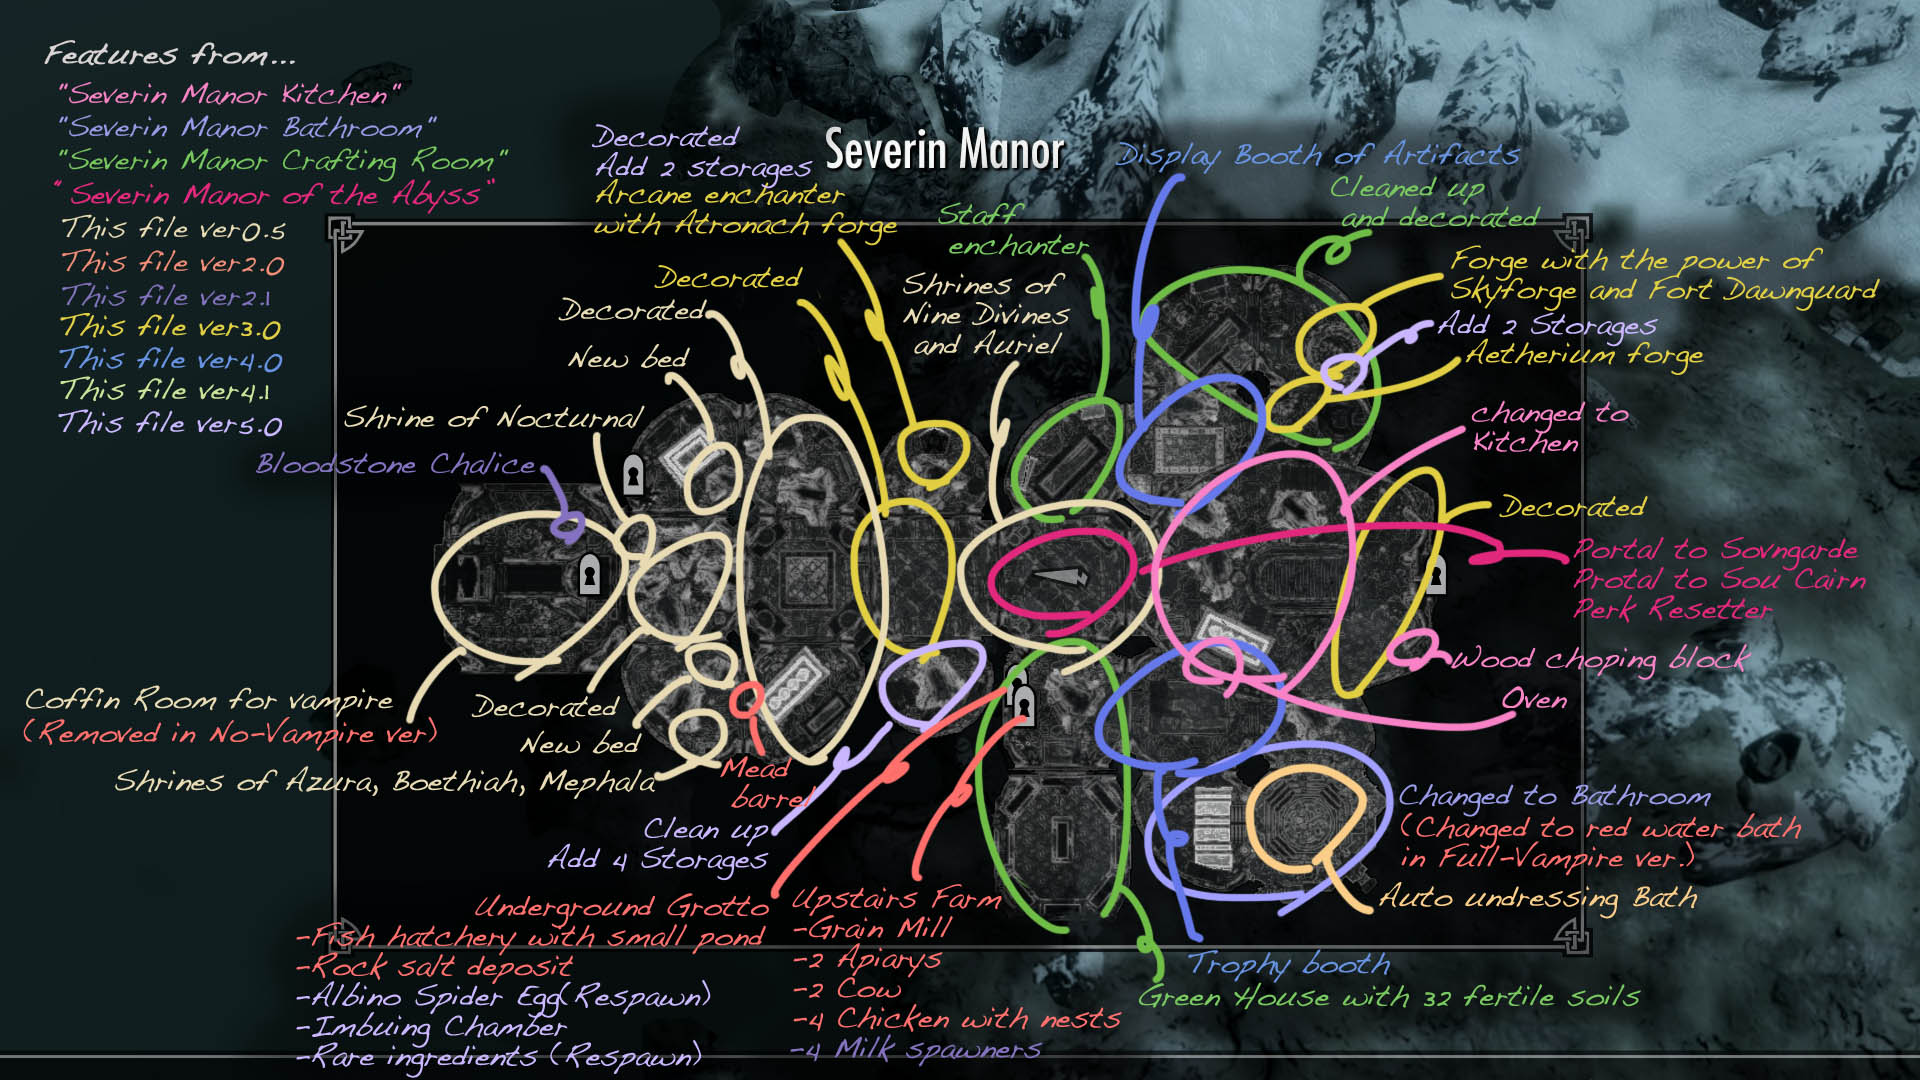 Features from...
"Severin Manor Kitchen"
"Severin Manor Bathroom"
"Severin Manor Crafting Room"
"Severin Manor of the Abyss"
This file ver0.5
This file ver2.0
This file ver2.1
This file ver3.0
This file ver4.0
This file ver4.1
This file ver5.0
Severin Manor
Decorated
Add 2 storages
Arcane enchanter
with Atronach forge
Decorated
Decorated
New bed
Shrine of Nocturnal
Bloodstone Chalice
Staff
enchanter
Shrines of
Nine Divines
and Auriel
Display Booth of Artifacts
Cleaned up
and decorated
Forge with the power of
Skyforge and Fort Dawnguard
Add 2 Storages
Aetherium forge
changed to
Kitchen
Decorated
Portal to Sovngarde
Protal to Sou Cairn
Perk Resetter
Wood choping block
Oven
Coffin Room for vampire
(Removed in No-Vampire ver)
Decorated
New bed
Shrines of Azura, Boethiah, Mephala
Mead
barrel
Clean up
Add 4 Storages
Changed to Bathroom
(Changed to red water bath
in Full-Vampire ver.)
Auto undressing Bath
Underground Grotto
-Fish hatchery with small pond
-Rock salt deposit
-Albino Spider Egg(Respawn)
-Imbuing Chamber
-Rare ingredients (Respawn)
Upstairs Farm
-Grain Mill
-2 Apiarys
-2 Cow
-4 Chicken with nests
-4 Milk spawners
Trophy booth
Green House with 32 fertile soils